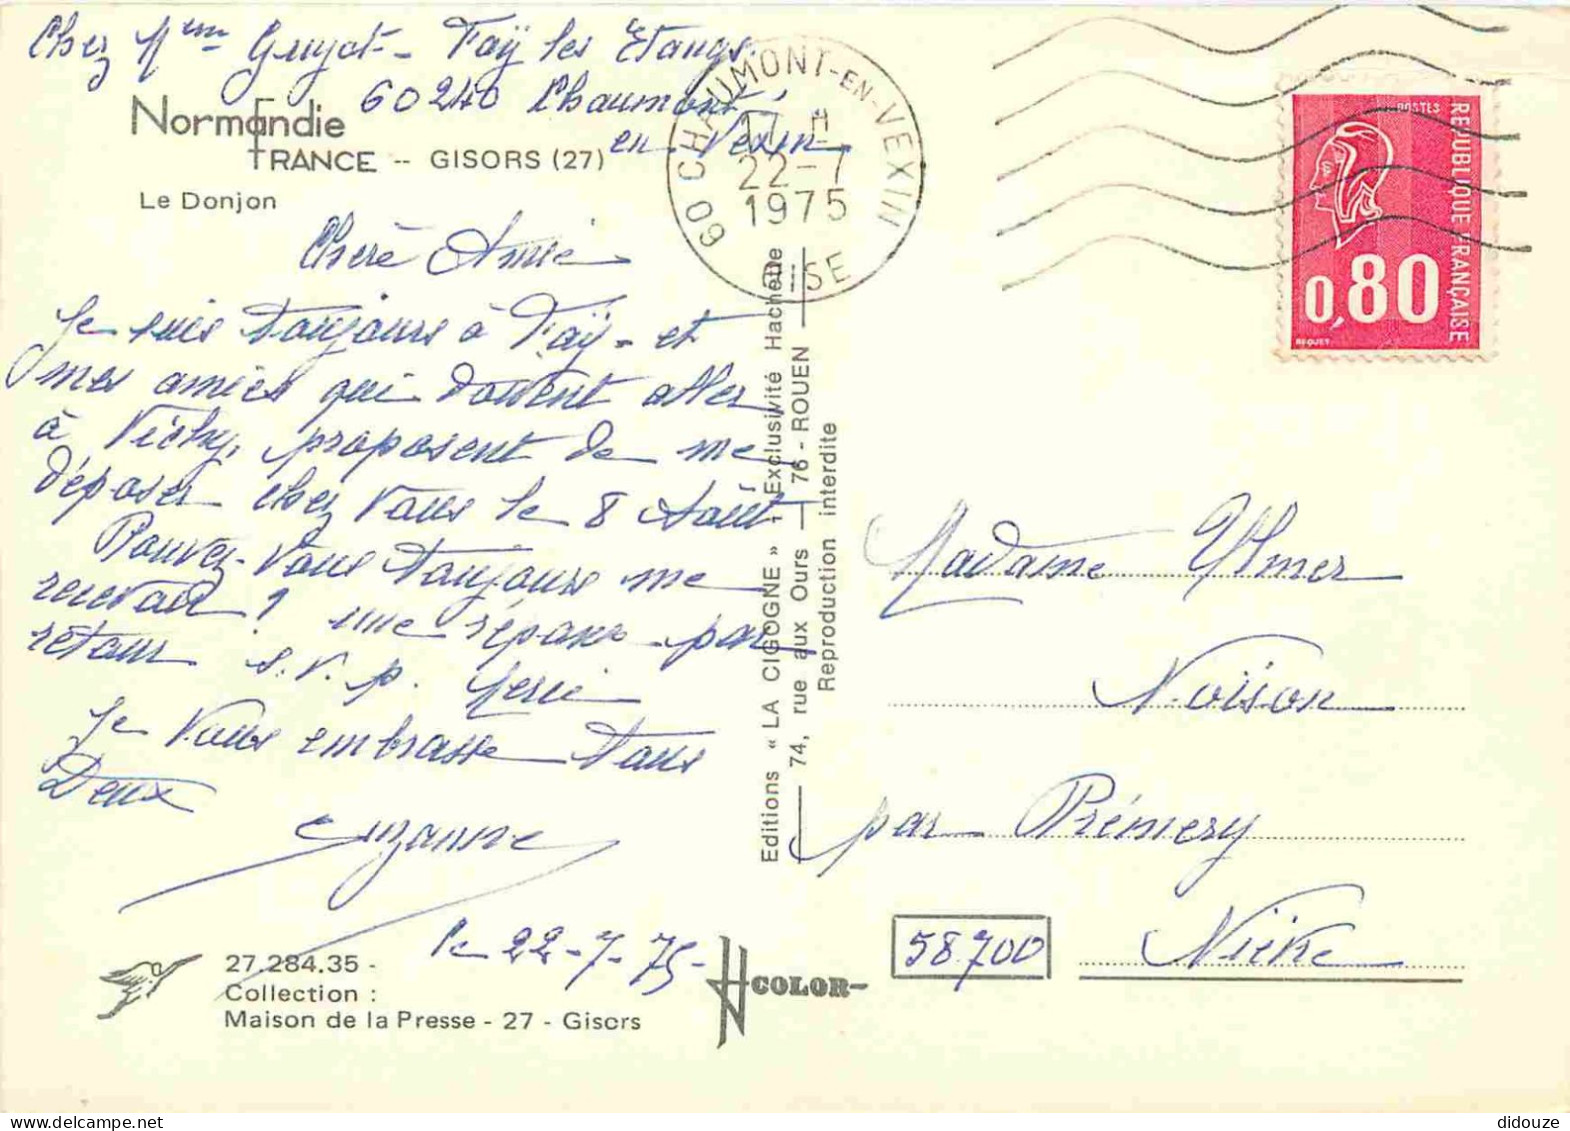 Chez Mme Guyot - Faÿ les Etangs.
60240 Chaumont
en Vexin
Normandie
FRANCE -- GISORS (27)
Le Donjon
60 CHAUMONT-EN-VEXIN
17 H
22-7
1975
OISE
POSTES
REPUBLIQUE FRANÇAISE
0,80
BEQUET
Chère Amie
Je suis toujours à Faÿ - et
mes amies qui doivent aller
à Vichy, proposent de me
déposer chez Vous le 8 Août
Pouvez-Vous toujours me
recevoir ? une réponse par
retour s.v.p. Merci
Je Vous embrasse tous
Deux
Suzanne
le 22-7-75-
Editions « LA CIGOGNE » : Exclusivité Hachette
74, rue aux Ours — 76 - ROUEN
Reproduction interdite
Madame Ulmer
Noïson
par Prémery
58700
Nièvre
27.284.35 -
Collection :
Maison de la Presse - 27 - Gisors
COLOR
didouze